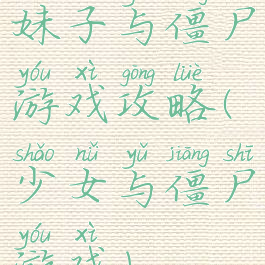 妹子与僵尸
yóu xì gōng lüè
游戏攻略(
shǎo nǚ yǔ jiāng shī
少女与僵尸
yóu xì
游戏)